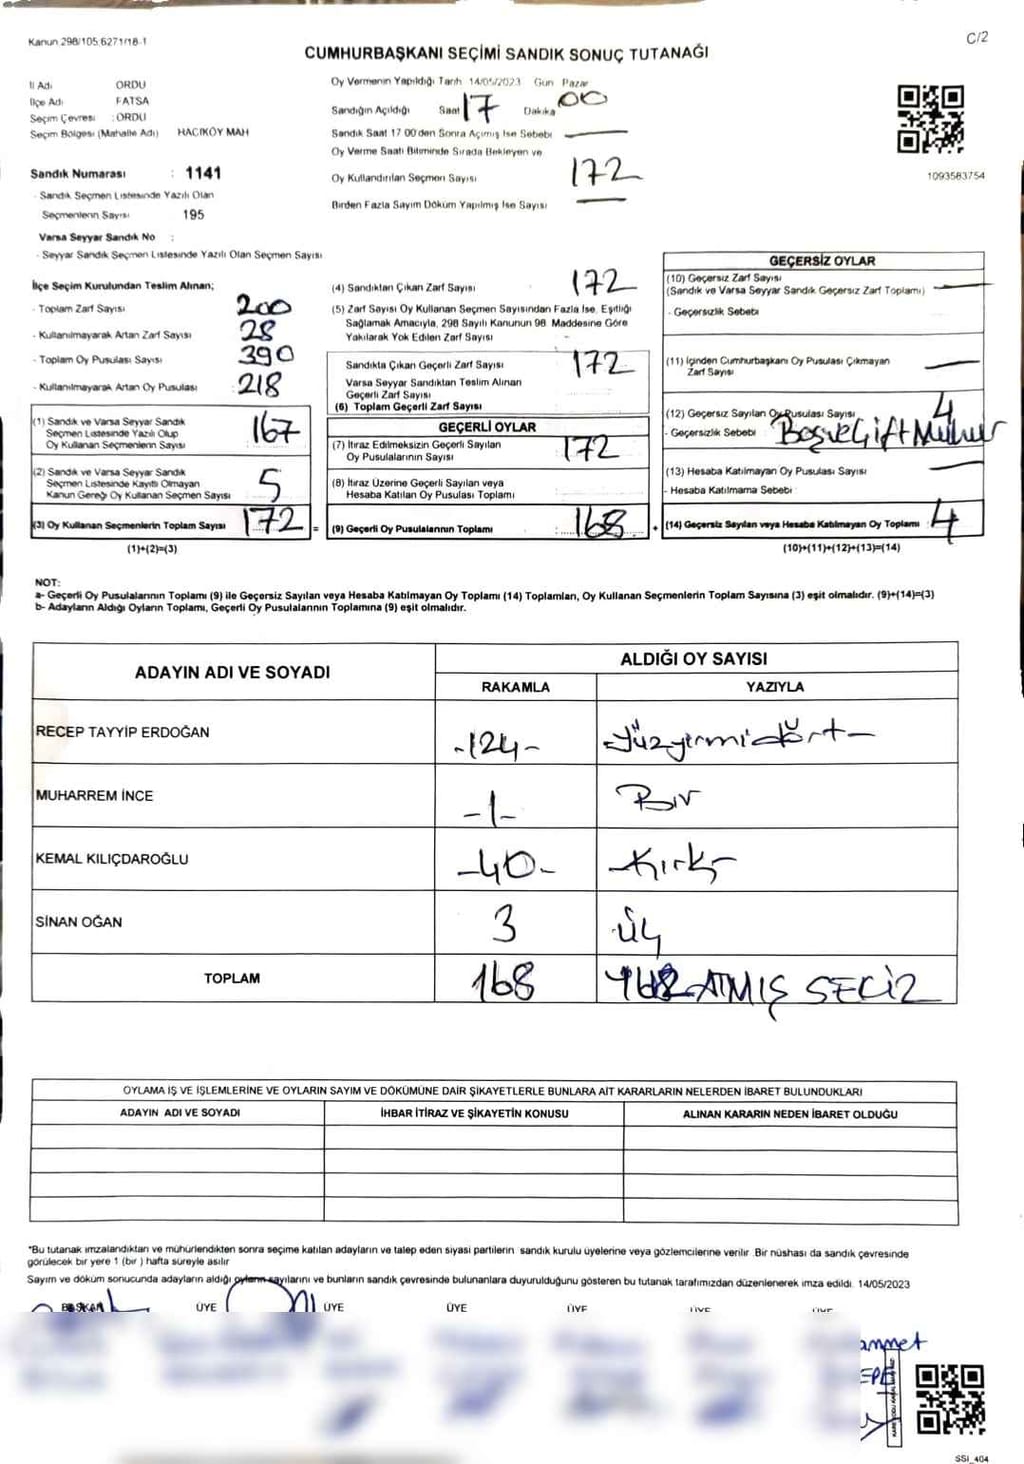 Kanun 298/105,6271/18-1
C/2
CUMHURBAŞKANI SEÇİMİ SANDIK SONUÇ TUTANAĞI
İl Adı ORDU
İlçe Adı FATSA
Seçim Çevresi : ORDU
Seçim Bölgesi (Mahalle Adı) HACIKÖY MAH
Sandık Numarası : 1141
- Sandık Seçmen Listesinde Yazılı Olan
Seçmenlerin Sayısı 195
Varsa Seyyar Sandık No :
- Seyyar Sandık Seçmen Listesinde Yazılı Olan Seçmen Sayısı
Oy Vermenin Yapıldığı Tarih 14/05/2023 Gün Pazar
Sandığın Açıldığı Saat 17 Dakika 00
Sandık Saat 17 00'den Sonra Açımış İse Sebebi
Oy Verme Saati Bitiminde Sırada Bekleyen ve
Oy Kullandırılan Seçmen Sayısı 172
Birden Fazla Sayım Döküm Yapılmış İse Sayısı
1093583754
İlçe Seçim Kurulundan Teslim Alınan;
- Toplam Zarf Sayısı 200
- Kullanılmayarak Artan Zarf Sayısı 28
- Toplam Oy Pusulası Sayısı 390
- Kullanılmayarak Artan Oy Pusulası 218
(1) Sandık ve Varsa Seyyar Sandık
Seçmen Listesinde Yazılı Olup
Oy Kullanan Seçmenlerin Sayısı 167
(2) Sandık ve Varsa Seyyar Sandık
Seçmen Listesinde Kayıtlı Olmayan
Kanun Gereği Oy Kullanan Seçmen Sayısı 5
(3) Oy Kullanan Seçmenlerin Toplam Sayısı 172 =
(1)+(2)=(3)
(4) Sandıktan Çıkan Zarf Sayısı 172
(5) Zarf Sayısı Oy Kullanan Seçmen Sayısından Fazla İse, Eşitliği
Sağlamak Amacıyla, 298 Sayılı Kanunun 98. Maddesine Göre
Yakılarak Yok Edilen Zarf Sayısı -
Sandıkta Çıkan Geçerli Zarf Sayısı 172
Varsa Seyyar Sandıktan Teslim Alınan
Geçerli Zarf Sayısı
(6) Toplam Geçerli Zarf Sayısı
GEÇERLİ OYLAR
(7) İtiraz Edilmeksizin Geçerli Sayılan
Oy Pusulalarının Sayısı 172
(8) İtiraz Üzerine Geçerli Sayılan veya
Hesaba Katılan Oy Pusulası Toplamı
(9) Geçerli Oy Pusulalarının Toplamı : 168 +
GEÇERSİZ OYLAR
(10) Geçersiz Zarf Sayısı
(Sandık ve Varsa Seyyar Sandık Geçersiz Zarf Toplamı)
- Geçersizlik Sebebi
(11) İçinden Cumhurbaşkanı Oy Pusulası Çıkmayan
Zarf Sayısı
(12) Geçersiz Sayılan Oy Pusulası Sayısı 4
- Geçersizlik Sebebi Boş ve Çift Mühür
(13) Hesaba Katılmayan Oy Pusulası Sayısı
- Hesaba Katılmama Sebebi
(14) Geçersiz Sayılan veya Hesaba Katılmayan Oy Toplamı 4
(10)+(11)+(12)+(13)=(14)
NOT:
a- Geçerli Oy Pusulalarının Toplamı (9) ile Geçersiz Sayılan veya Hesaba Katılmayan Oy Toplamı (14) Toplamları, Oy Kullanan Seçmenlerin Toplam Sayısına (3) eşit olmalıdır. (9)+(14)=(3)
b- Adayların Aldığı Oyların Toplamı, Geçerli Oy Pusulalarının Toplamına (9) eşit olmalıdır.
ADAYIN ADI VE SOYADI
ALDIĞI OY SAYISI
RAKAMLA YAZIYLA
RECEP TAYYİP ERDOĞAN -124- yüzyirmidört-
MUHARREM İNCE -1- Bir
KEMAL KILIÇDAROĞLU -40- -Kırk-
SİNAN OĞAN 3 üç
TOPLAM 168 ATMIŞ SECİZ
OYLAMA İŞ VE İŞLEMLERİNE VE OYLARIN SAYIM VE DÖKÜMÜNE DAİR ŞİKAYETLERLE BUNLARA AİT KARARLARIN NELERDEN İBARET BULUNDUKLARI
ADAYIN ADI VE SOYADI İHBAR İTİRAZ VE ŞİKAYETİN KONUSU ALINAN KARARIN NEDEN İBARET OLDUĞU
*Bu tutanak imzalandıktan ve mühürlendikten sonra seçime katılan adayların ve talep eden siyasi partilerin sandık kurulu üyelerine veya gözlemcilerine verilir. Bir nüshası da sandık çevresinde
görülecek bir yere 1 (bir) hafta süreyle asılır
Sayım ve döküm sonucunda adayların aldığı oyların sayılarını ve bunların sandık çevresinde bulunanlara duyurulduğunu gösteren bu tutanak tarafımızdan düzenlenerek imza edildi. 14/05/2023
BAŞKAN ÜYE ÜYE ÜYE ÜYE ÜYE ÜYE
SSI_404